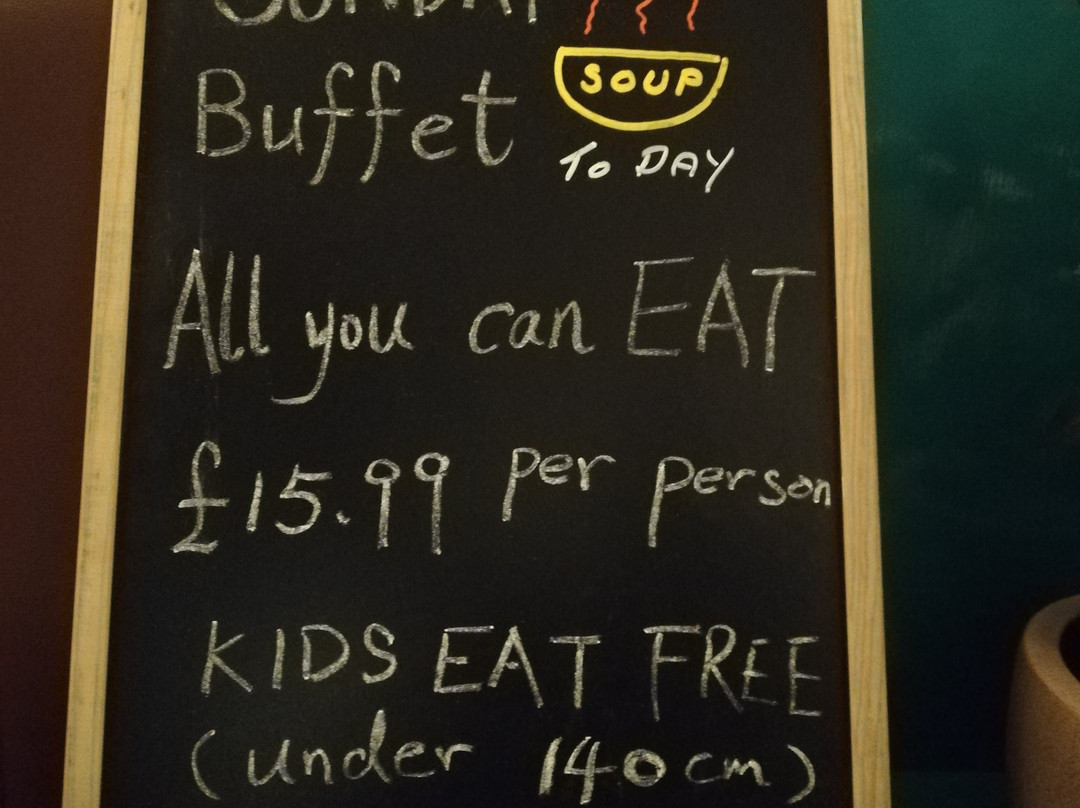 SUNDAY
Buffet
SOUP
To DAY
All you can EAT
£15.99 per person
KIDS EAT FREE
(under 140cm)